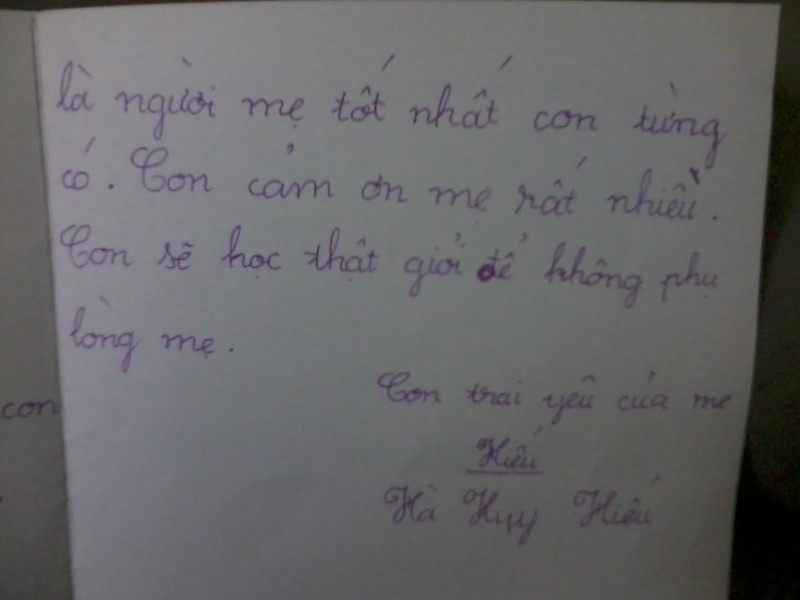 là người mẹ tốt nhất con từng
có. Con cảm ơn mẹ rất nhiều.
Con sẽ học thật giỏi để không phụ
lòng mẹ.
con
Con trai yêu của mẹ
Hiếu
Hà Huy Hiếu